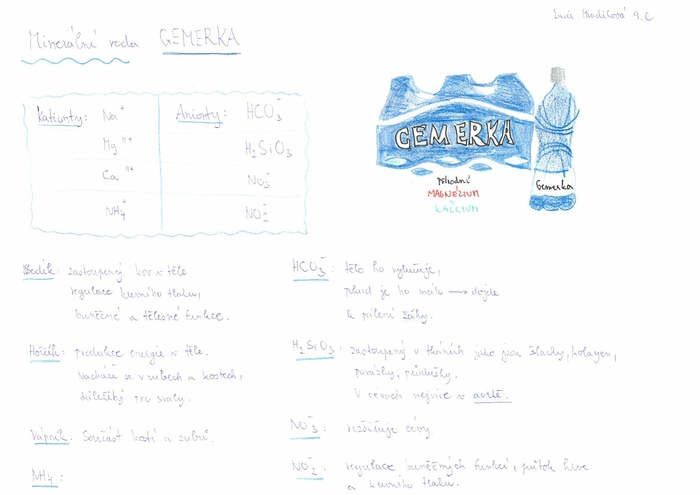 Lucie Hradilová 9.C
Minerální voda GEMERKA
Kationty: Na⁺
Mg²⁺
Ca²⁺
NH₄⁺
Anionty: HCO₃⁻
H₂SiO₃
NO₃⁻
NO₂⁻
GEMERKA
přírodní
MAGNÉZIUM
KALCIUM
Gemerka
Sodík: zastoupený kov v těle
regulace krevního tlaku,
buněčné a tělesné funkce.
Hořčík: produkce energie v těle.
Nachází se v zubech a kostech,
důležitý pro svaly.
Vápník: Součást kostí a zubů.
NH₄:
HCO₃⁻: tělo ho vylučuje,
pokud je ho málo → dojde
k pálení žáhy.
H₂SiO₃: zastoupený v tkáních jako jsou šlachy, kolagen,
povázky, průdušky.
V cévách nejvíce v aortě.
NO₃⁻: rozšiřuje cévy
NO₂⁻: regulace buněčných funkcí, průtok krve
a krevního tlaku.